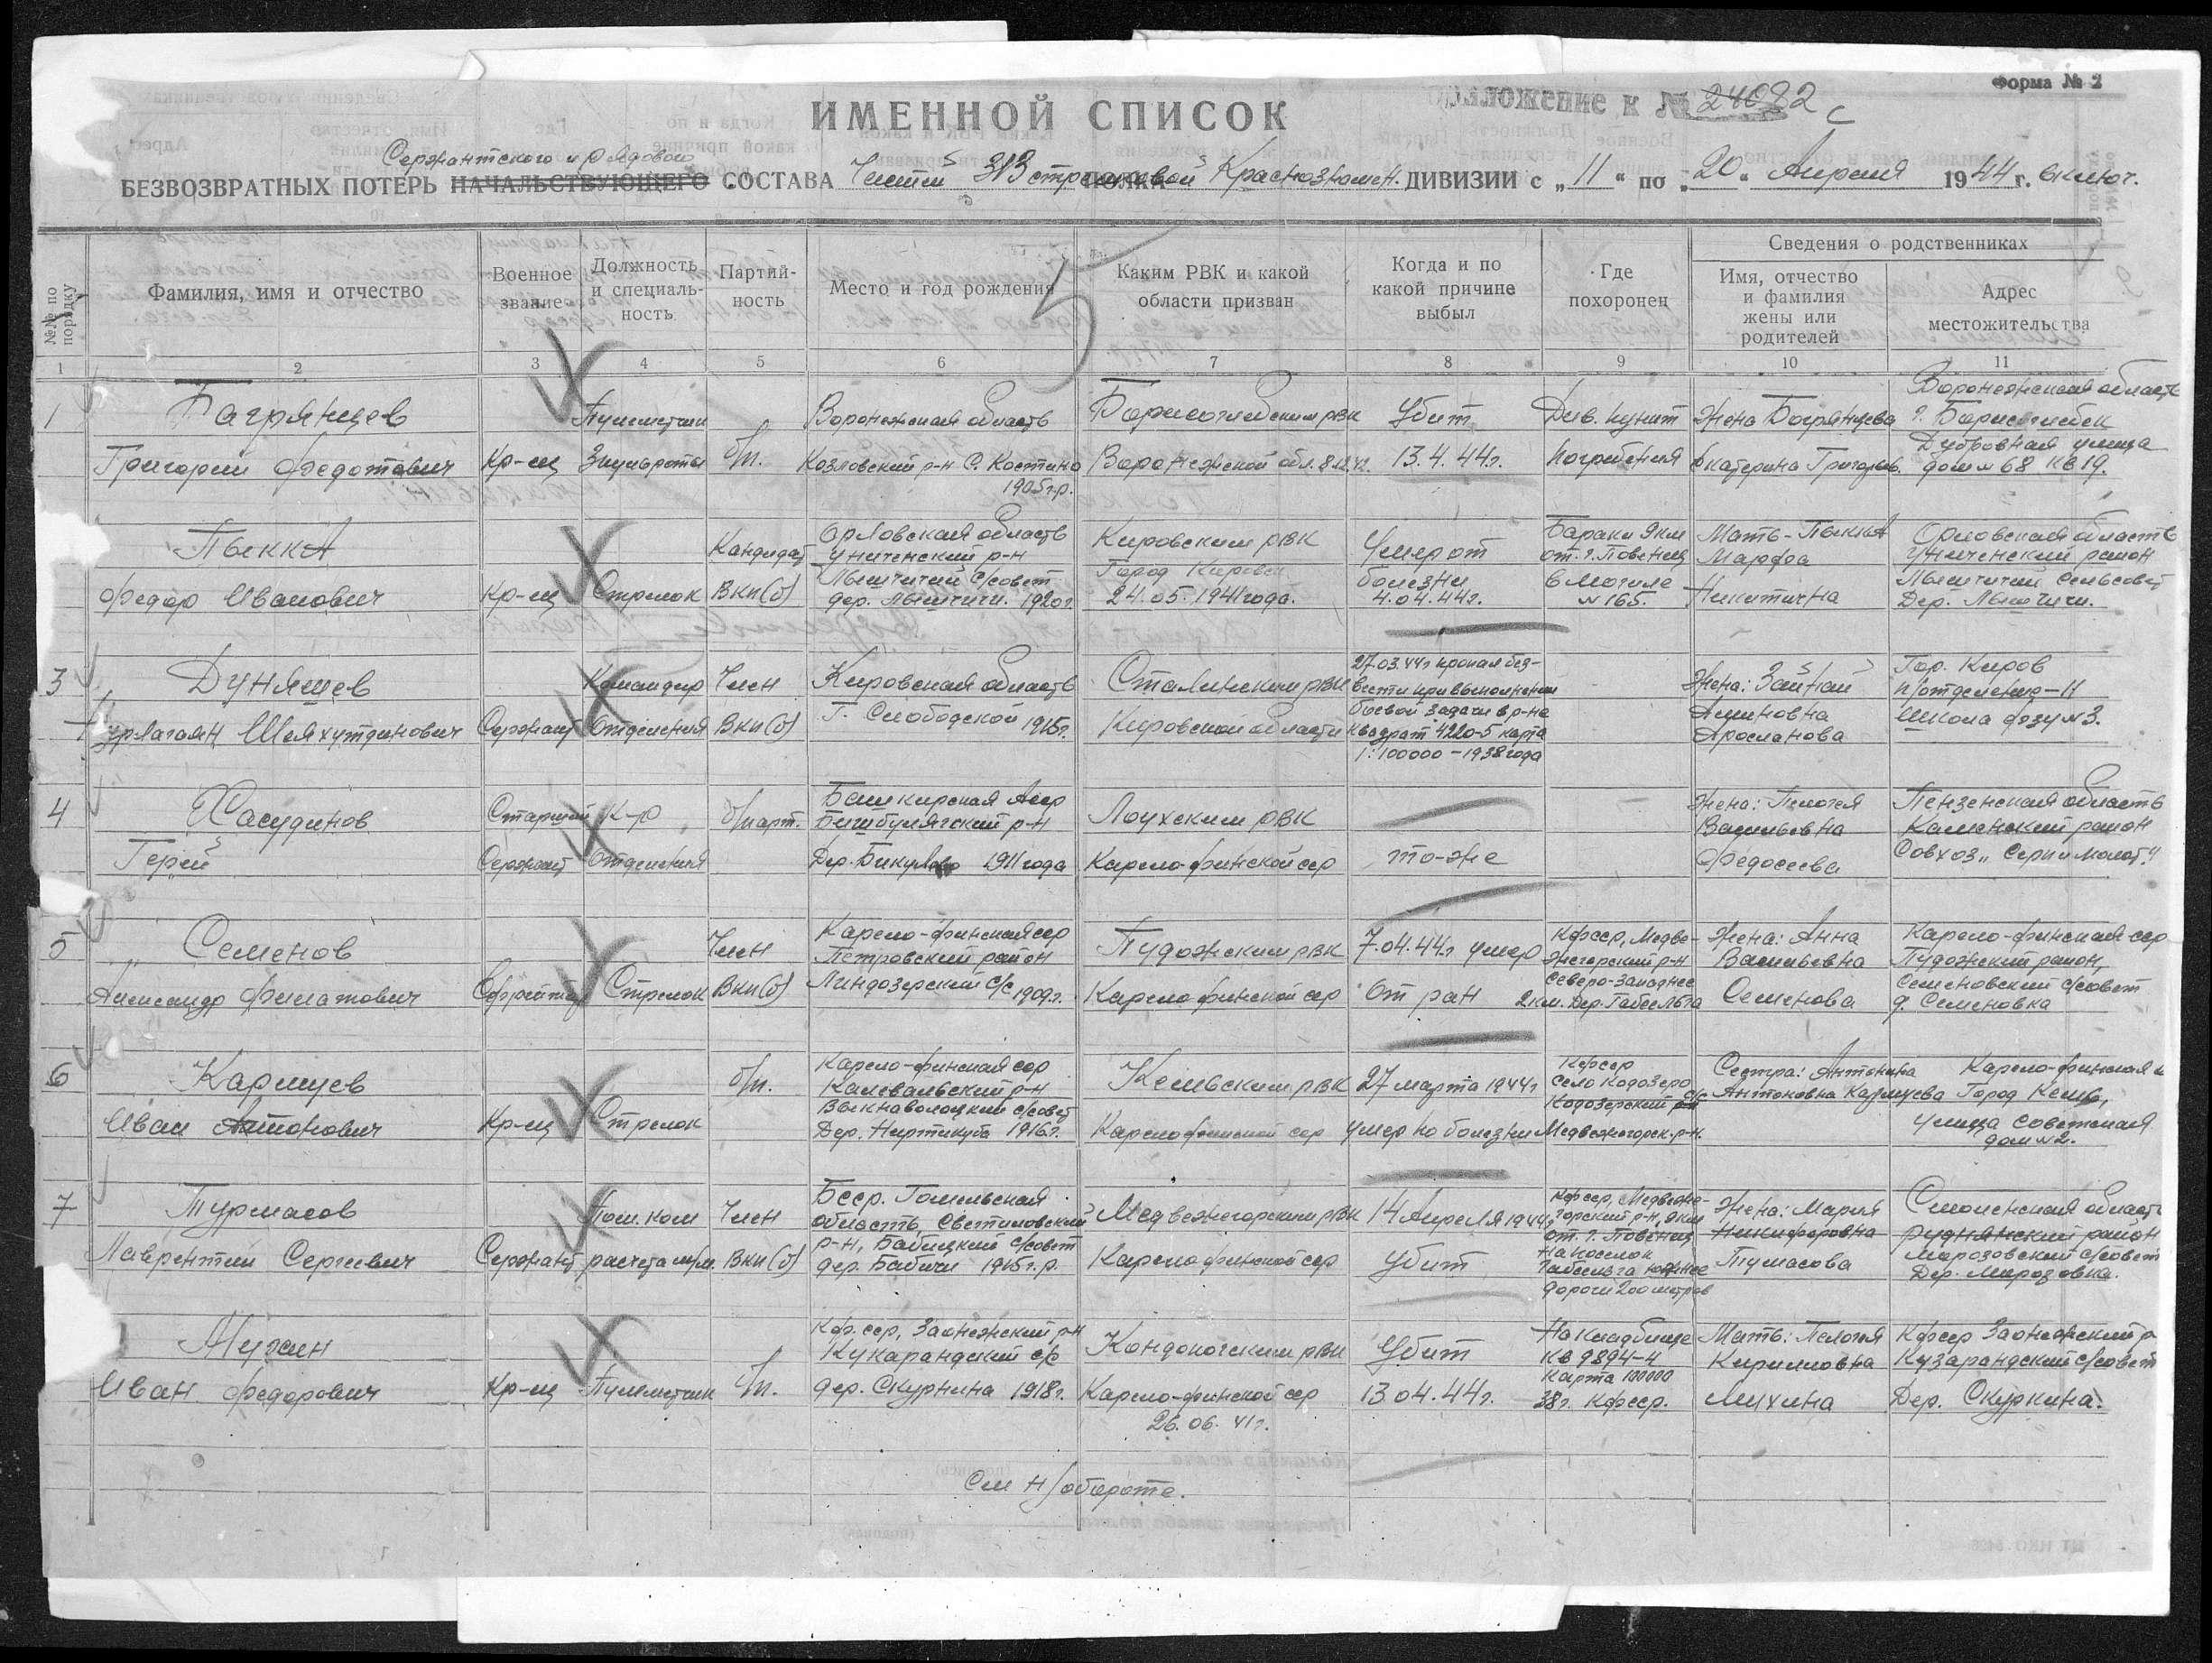 Форма № 2
Приложение к № 24082 с
ИМЕННОЙ СПИСОК
Сержантского и рядового
БЕЗВОЗВРАТНЫХ ПОТЕРЬ НАЧАЛЬСТВУЮЩЕГО СОСТАВА Частей 313 стрелковой Краснознамен. ДИВИЗИИ с „11“ по „20“ Апреля 1944 г. включ.
№№ по порядку
Фамилия, имя и отчество
Военное звание
Должность и специальность
Партийность
Место и год рождения
Каким РВК и какой области призван
Когда и по какой причине выбыл
Где похоронен
Сведения о родственниках
Имя, отчество и фамилия жены или родителей
Адрес местожительства
1 2 3 4 5 6 7 8 9 10 11
1
Багрянцев
Григорий Федотович
Кр-ец
Пулеметчик
3 пульроты
б/п.
Воронежская область
Козловский р-н С. Костино
1905 г.р.
Борисоглебским РВК
Воронежской обл.
Убит
13.4.44г.
Див. пункт
погребения
Жена Богрянцева
Екатерина Григорьев.
Воронежская область
г. Борисоглебск
Дубровная улица
дом № 68 кв 19.
Пыкка
Федор Иванович
Кр-ец
Стрелок
Кандидат
ВКП(б)
Орловская область
р-н
с/совет
1920 г.
Кировским РВК
Город Киров
24.05.1941 года.
Умер от
болезни
4.04.44г.
Бараки 9 км
от. г. Повенец
в могиле
№ 165.
Мать - Пыкка
Марфа
Никитична
Орловская область
район
сельсовет
3
Дуняшев
Нурлагаян Шаяхутдинович
Сержант
Командир
отделения
Член
ВКП(б)
Кировская область
Г. Слободской 1915г.
Сталинским РВК
Кировской области
27.03.44г пропал без-
вести при выполнении
боевой задачи в р-не
квадрат 4220-5 карта
1:100000 - 1938 года
Жена: Зайнай
Аминовна
Арсланова
Гор. Киров
п/отделение-11
Школа фзу № 3.
4
Хасудинов
Герей
Старший
Сержант
К-р
отделения
б/парт.
Башкирская Асср
Бишбулякский р-н
1911 года
Лоухским РВК
Карело-финской сср
то-же
Жена: Пелогея
Васильевна
Федосеева
Пензенская область
Каменский район
Совхоз „Серп и молот“
5
Семенов
Александр Филатович
Ефрейтор
Стрелок
Член
ВКП(б)
Карело-финская сср
Петровский район
Линдозерский С/с 1909г.
Пудожским РВК
Карело финской сср
7.04.44г умер
от ран
Кфсср, Медве-
жегорский р-н
Северо-западнее
2 км. Дер. Габсельга
Жена: Анна
Васильевна
Семенова
Карело-финская сср
Пудожский район,
Семеновский с/совет
д. Семеновка
6
Каршуев
Иван Антонович
Кр-ец
Стрелок
б/п.
Карело-финская сср
Калевальский р-н
с/совет
1916г.
Кемьским РВК
Карело финской сср
27 марта 1944г
умер по болезни
Кфсср
село Кодозеро
Кодозерский с/с
Медвежегорск. р-н.
Сестра: Антонина
Антоновна Каршуева
Карело-финская
Город Кемь,
улица Советская
дом № 2.
7
Турмасов
Лаврентий Сергеевич
Сержант
Пом. ком
расчета м/м.
Член
ВКП(б)
Бсср. Гомельская
область, Светиловский
р-н, Бабичский с/совет
дер. Бабичи 1915 г.р.
Медвежегорским РВК
Карело финской сср
14 Апреля 1944г
Убит
Кфсср, Медвеже-
горский р-н, 9 км
от. г. Повенец
на поселок
Габсельга южнее
дороги 200 метров
Жена: Мария
Никифоровна
Тумасова
Смоленская область
Руднянский район
Морозовский с/совет
Дер. Морозовка.
Мухин
Иван Федорович
Кр-ец
Пулеметчик
б/п.
Кф. сср, Заонежский р-н
Кузарандский с/с
дер. Скурнина 1918г.
Кондопожским РВК
Карело-финской сср
26.06.41г.
Убит
13.04.44г.
На кладбище
кв 9894-4
карта 100000
38г. Кфсср.
Мать: Пелогея
Кирилловна
Мухина
Кфсср Заонежский р
Кузарандский с/совет
Дер. Скуркина.
См н/обороте.